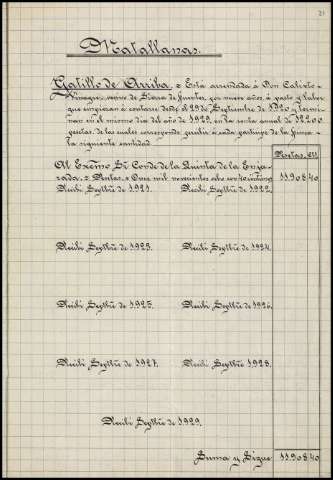 Matallana.
Gatillo de Arriba, = Está arrendada á Don Calixto
Vinagre, vecino de Sierra de Fuentes, por nueve años, á pasto y labor
que empezaron á contarse desde el 29 de Septiembre de 1920 y termi-
nan en el mismo dia del año de 1929, en la renta anual de 12.200
pesetas, de las cuales corresponde percibir á cada partícipe de la finca
la siguiente cantidad
Pesetas. Cts.
Al Excmo. Sr. Conde de la Quinta de la Enja-
rada, = Pesetas, = Once mil novecientas ocho con 40 céntimos 11908 40
Recibí Sepbre de 1921. Recibí Sepbre de 1922.
Recibí Sepbre de 1923. Recibí Sepbre de 1924.
Recibí Sepbre de 1925. Recibí Sepbre de 1926.
Recibí Sepbre de 1927. Recibí Sepbre de 1928.
Recibí Sepbre de 1929.
Suma y Sigue 11908 40